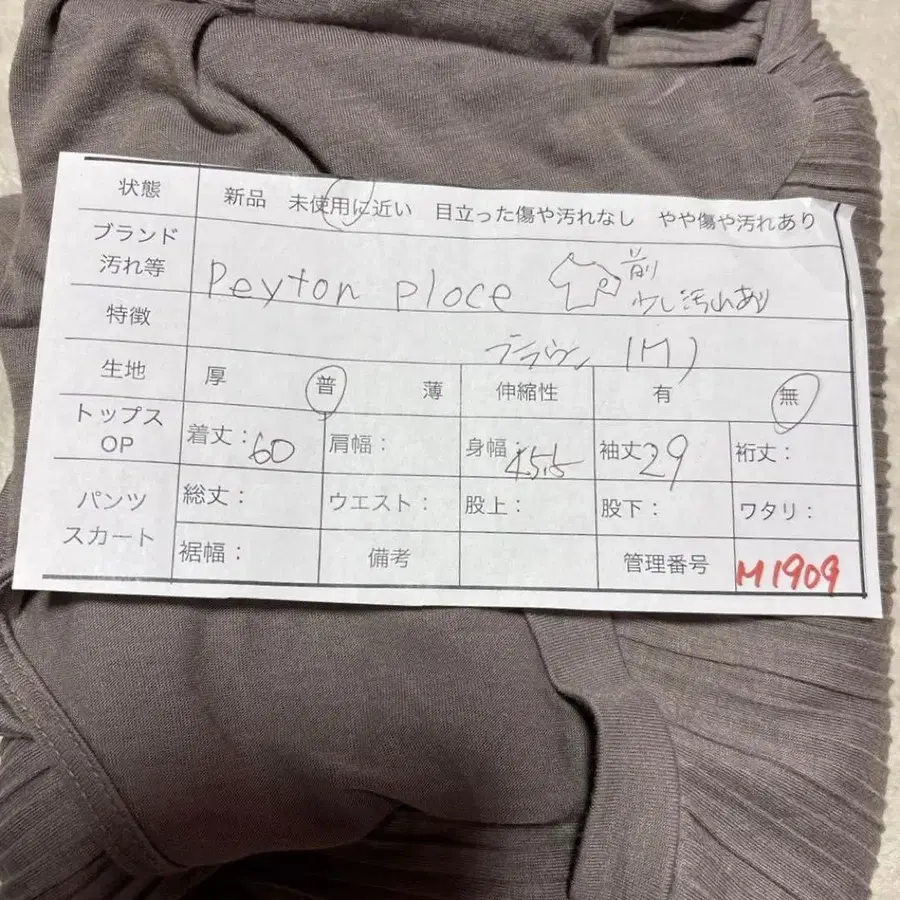 状態 新品 未使用に近い 目立った傷や汚れなし やや傷や汚れあり
ブランド
汚れ等 Peyton ploce 前
少し汚れあり
特徴 ブラウン (M)
生地 厚 普 薄 伸縮性 有 無
トップス
OP 着丈:60 肩幅: 身幅:45.5 袖丈29 裄丈:
パンツ
スカート 総丈: ウエスト: 股上: 股下: ワタリ:
裾幅: 備考 管理番号 M1909